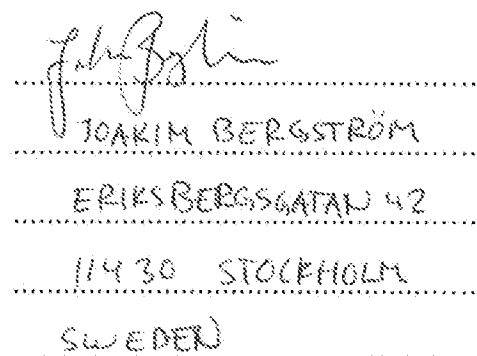 JOAKIM BERGSTRÖM
ERIKSBERGSGATAN 42
114 30 STOCKHOLM
SWEDEN